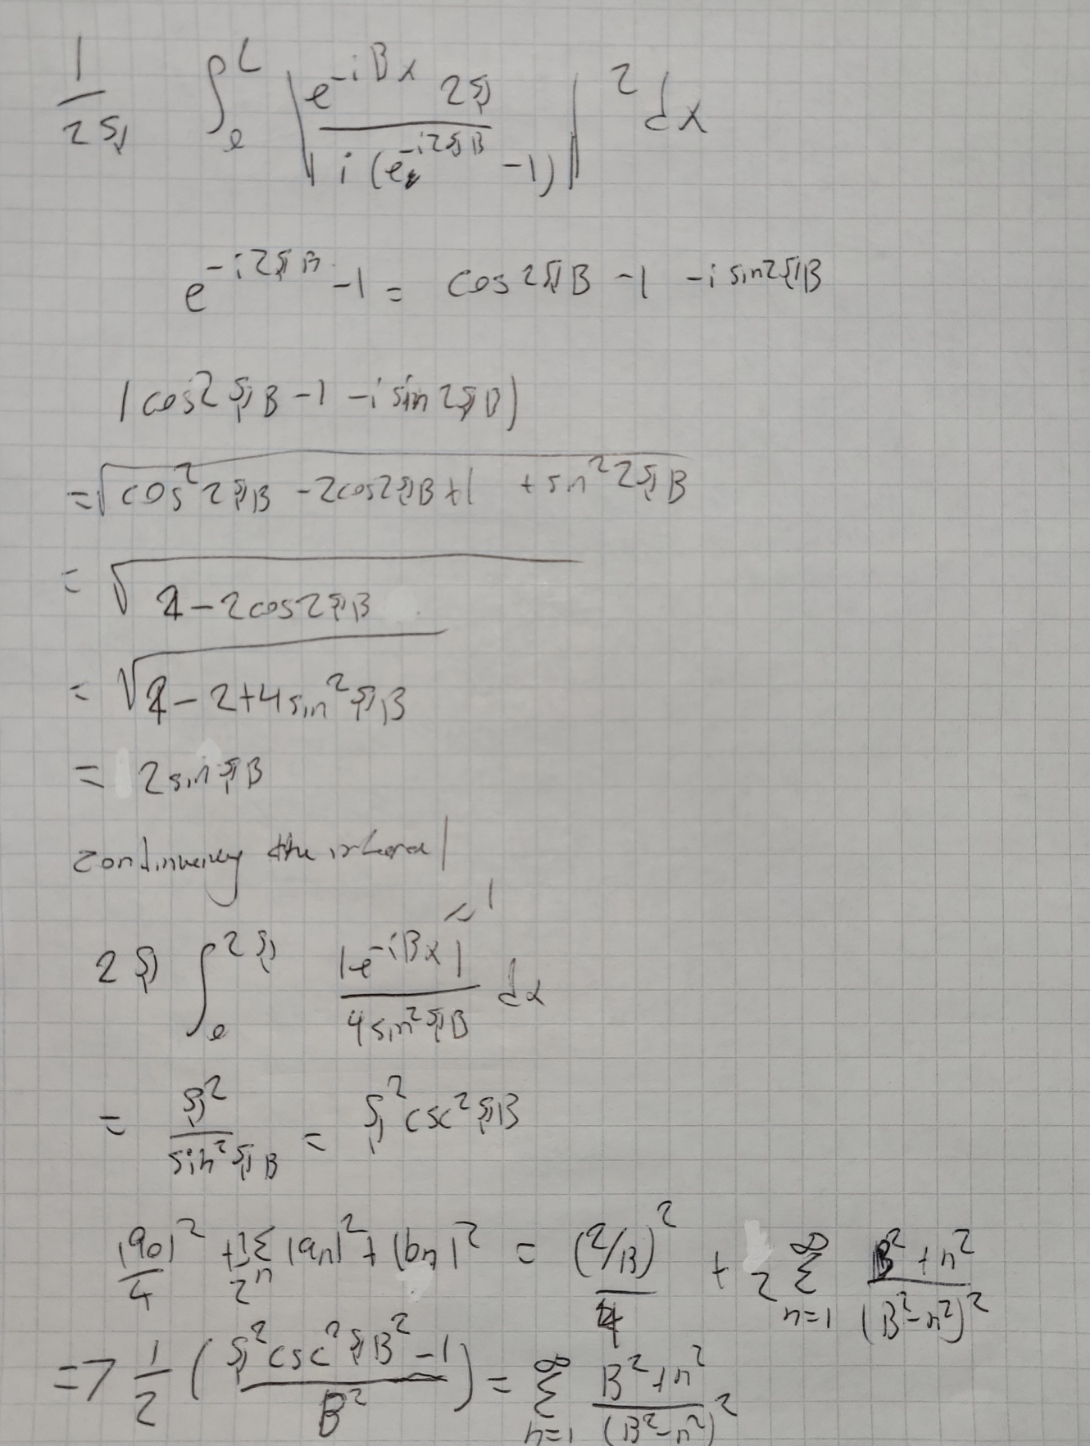 1/2π ∫_0^L |e^{-iBx} 2π / i(e^{-i2πB} -1)|^2 dx
e^{-i2πB} -1 = cos2πB -1 -i sin2πB
|cos2πB -1 -i sin2πB|
= √(cos^2 2πB -2cos2πB +1 + sin^2 2πB)
= √(2 - 2cos2πB)
= √(2 - 2 + 4sin^2 πB)
= 2sinπB
continueing the integral
2π ∫_0^{2π} |e^{-iBx}|^{=1} / 4sin^2 πB dx
= π^2 / sin^2 πB = π^2 csc^2 πB
|a0|^2/4 + 1/2 Σ_n |an|^2 + |bn|^2 = (2/B)^2/4 + 2 Σ_{n=1}^∞ B^2+n^2 / (B^2-n^2)^2
=> 1/2 (π^2 csc^2 πB^2 -1 / B^2) = Σ_{n=1}^∞ B^2+n^2 / (B^2-n^2)^2